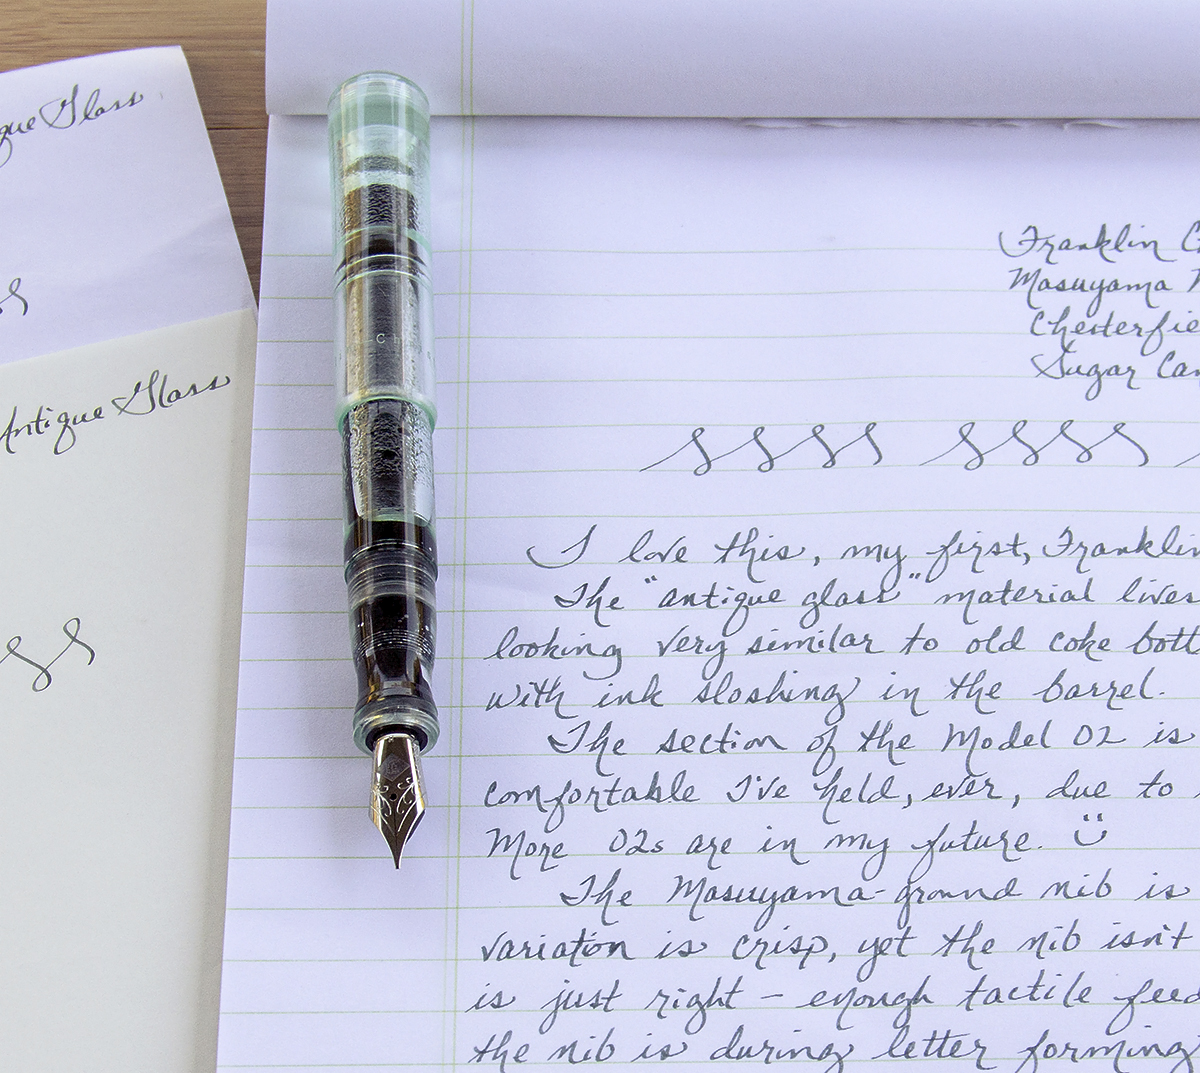 que Glass
Antique Glass
Franklin
Masuyama
Sugar
I love this, my first, Franklin
The "antique glass" material lives
looking very similar to old coke
with ink sloshing in the barrel.
The section of the Model 02 is
comfortable I've held, ever, due to
More 02s are in my future.
The Masuyama-ground nib is
variation is crisp, yet the nib isn't
is just right - enough tactile
the nib is during letter forming